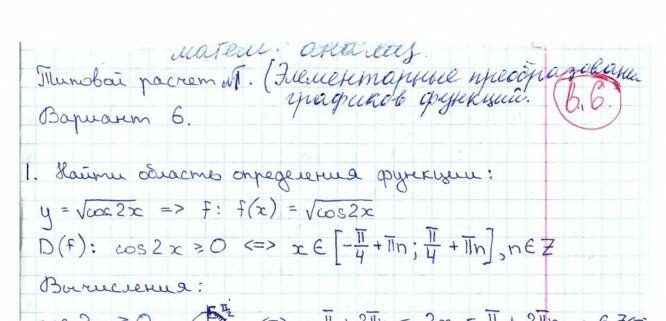 матем. анализ.
Типовой расчет №1. (Элементарные преобразовани
графиков функций.
В.6.
Вариант 6.
1. Найти область определения функции:
y = √cos2x => f: f(x) = √cos2x
D(f): cos2x ≥ 0 <=> x ∈ [-π/4 + πn; π/4 + πn], n ∈ Z
Вычисления: